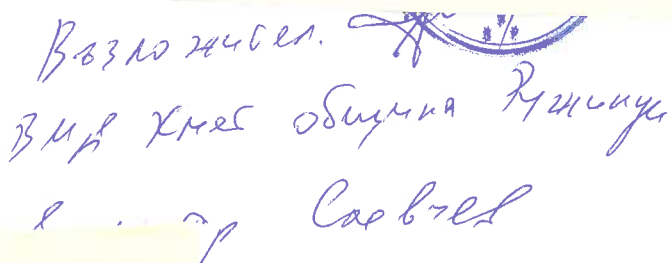 Възложител.
ВИД Кмет община Ружинци
Савчев